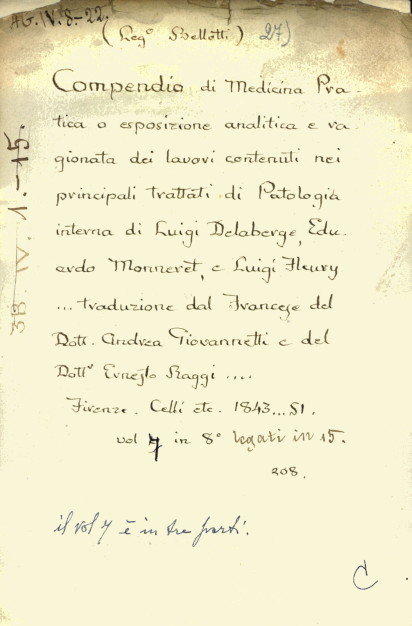 AG. IV. 8-22.
(Leg.º Bellotti) 27)
Compendio di Medicina Pra-
tica o esposizione analitica e ra-
gionata dei lavori contenuti nei
principali trattati di Patologia
interna di Luigi Delaberge, Edu-
ardo Monneret, e Luigi Fleury
... traduzione dal Francese del
Dott. Andrea Giovannetti e del
Dott.º Ernesto Raggi ....
Firenze. Celli etc. 1843...51.
vol 7 in 8º legati in 15.
208.
il vol 7 è in tre parti.
C
3B. IV. 1.-15.